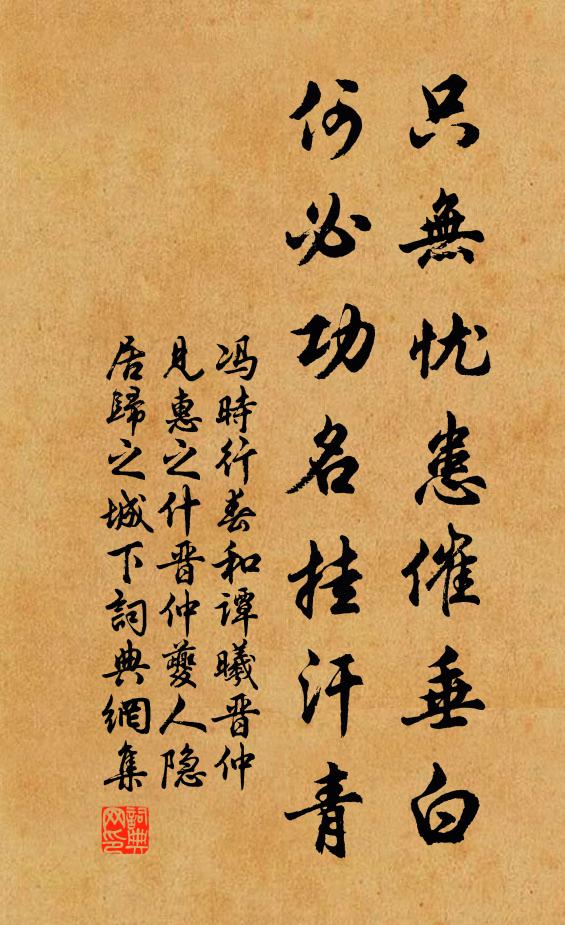 只無忧患催垂白
何必功名挂汗青
冯時行奉和谭曦晋仲
見惠之什晋仲夔人隐
居歸之城下詞典網集
詞典网印